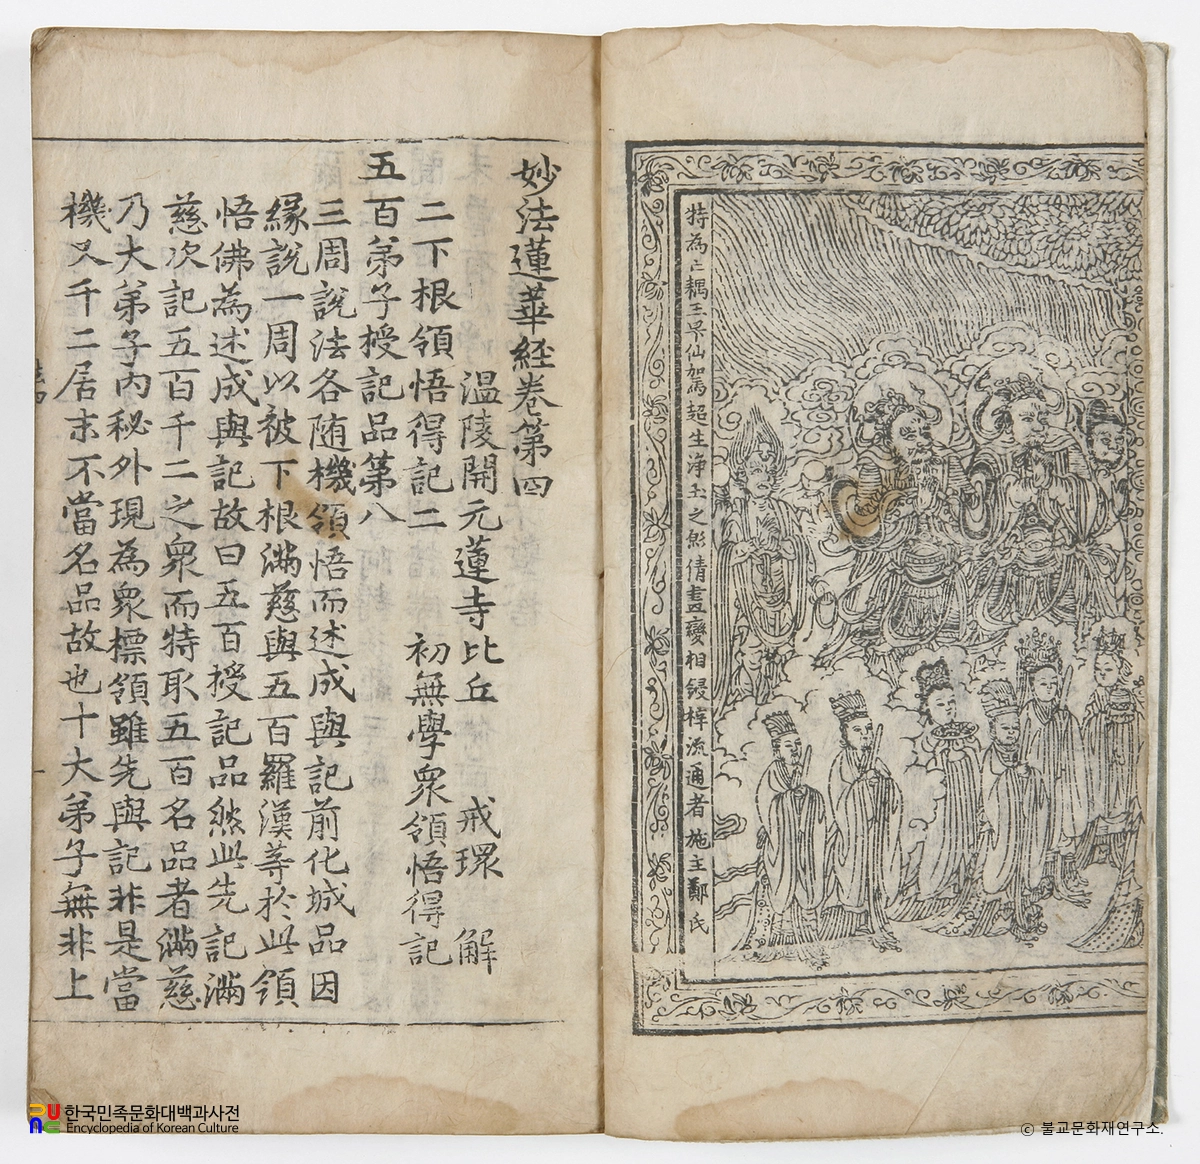 特為亡耦王㫷仙駕超生淨土之㣲倩畫變相鋟梓流通者施主鄭氏
妙法蓮華経卷第四
温陵開元蓮寺比丘 戒環 解
二下根領悟得記二 初無學衆領悟得記
五百弟子授記品第八
三周說法各随機領悟而述成與記前化城品因
緣說一周以被下根滿慈與五百羅漢等於此領
悟佛為述成與記故曰五百授記品然此先記滿
慈次記五百千二之衆而特取五百名品者滿慈
乃大弟子内秘外現為衆標領雖先與記非是當
機又千二居末不當名品故也十大弟子無非上
한국민족문화대백과사전
Encyclopedia of Korean Culture
ⓒ 불교문화재연구소.